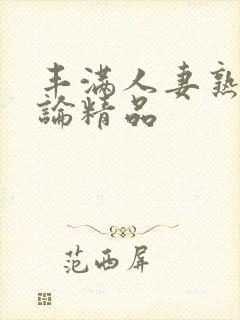 丰满人妻熟
論精品
范西屏